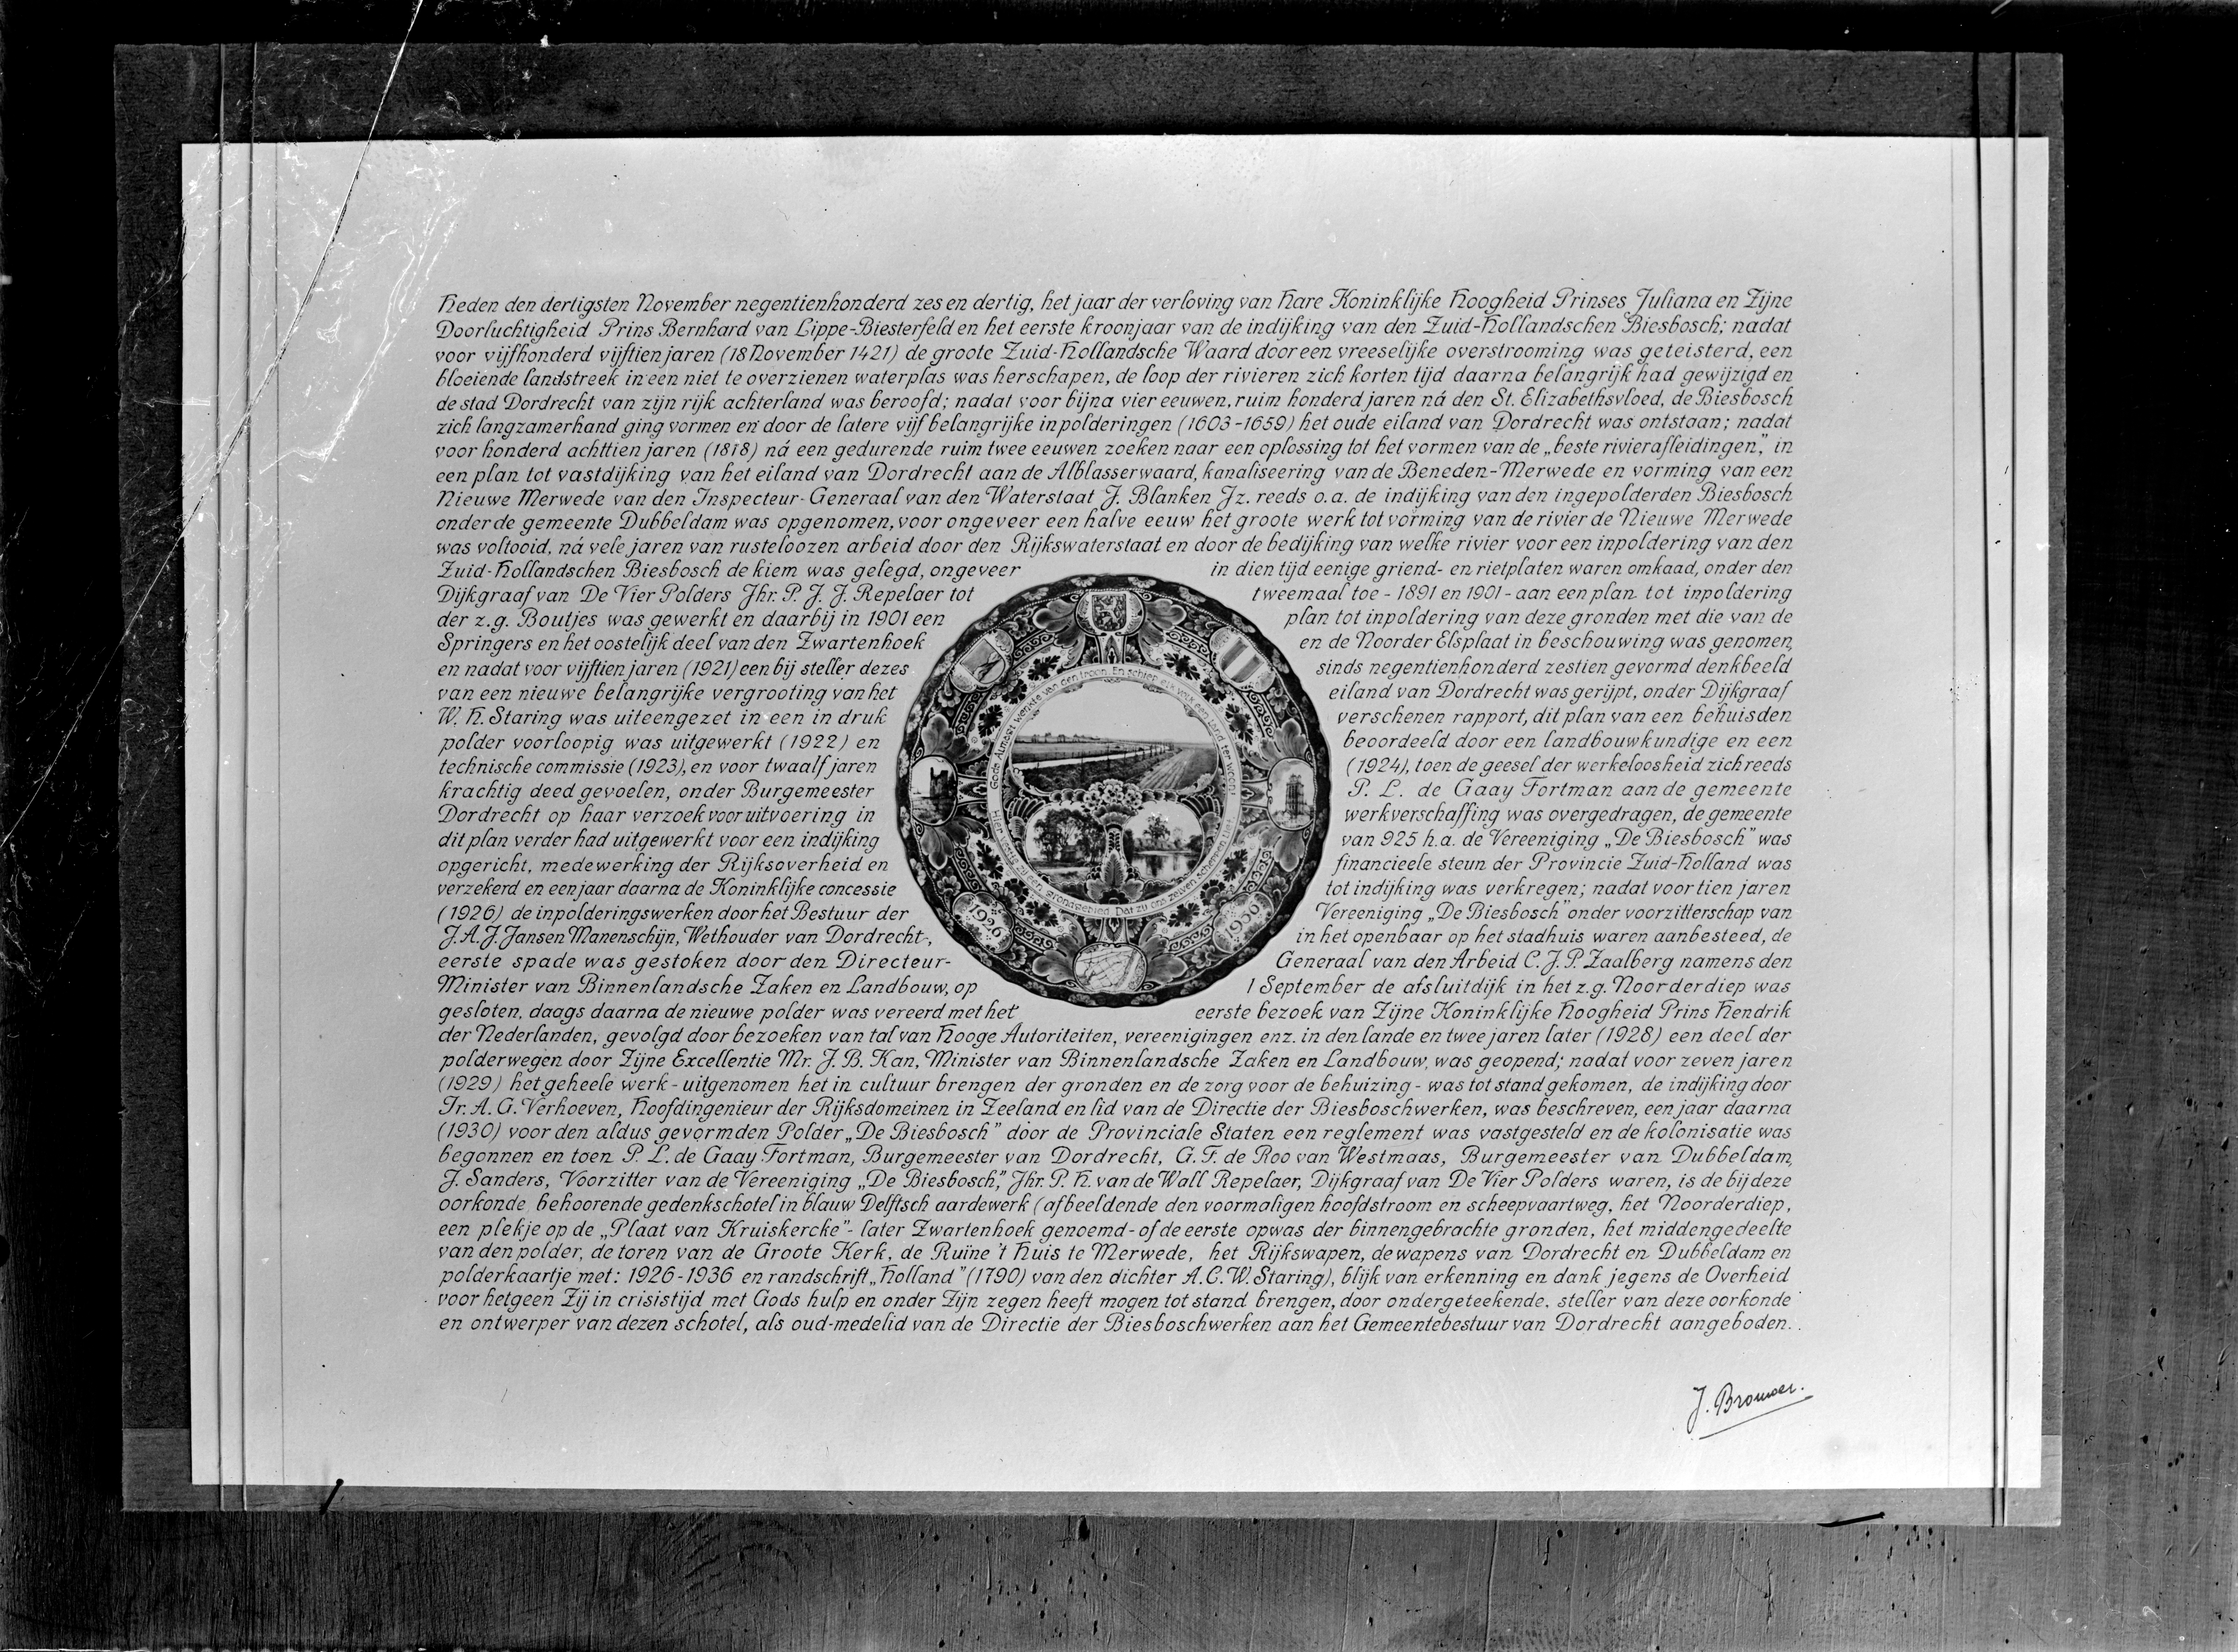 Heden den dertigsten November negentienhonderd zes en dertig, het jaar der verloving van Hare Koninklijke Hoogheid Prinses Juliana en Zijne
Doorluchtigheid Prins Bernhard van Lippe-Biesterfeld en het eerste kroonjaar van de indijking van den Zuid-Hollandschen Biesbosch; nadat
voor vijfhonderd vijftien jaren (18 November 1421) de groote Zuid-Hollandsche Waard door een vreeselijke overstrooming was geteisterd, een
bloeiende landstreek in een niet te overzienen waterplas was herschapen, de loop der rivieren zich korten tijd daarna belangrijk had gewijzigd en
de stad Dordrecht van zijn rijk achterland was beroofd; nadat voor bijna vier eeuwen, ruim honderd jaren ná den St. Elizabethsvloed, de Biesbosch
zich langzamerhand ging vormen en door de latere vijf belangrijke inpolderingen (1603-1659) het oude eiland van Dordrecht was ontstaan; nadat
voor honderd achttien jaren (1818) ná een gedurende ruim twee eeuwen zoeken naar een oplossing tot het vormen van de „beste rivierafleidingen," in
een plan tot vastdijking van het eiland van Dordrecht aan de Alblasserwaard, kanaliseering van de Beneden-Merwede en vorming van een
Nieuwe Merwede van den Inspecteur-Generaal van den Waterstaat J. Blanken Jz. reeds o.a. de indijking van den ingepolderden Biesbosch
onder de gemeente Dubbeldam was opgenomen, voor ongeveer een halve eeuw het groote werk tot vorming van de rivier de Nieuwe Merwede
was voltooid, ná vele jaren van rusteloozen arbeid door den Rijkswaterstaat en door de bedijking van welke rivier voor een inpoldering van den
Zuid-Hollandschen Biesbosch de kiem was gelegd, ongeveer in dien tijd eenige griend- en rietplaten waren omkaad, onder den
Dijkgraaf van De Vier Polders Jhr. P. J. J. Repelaer tot tweemaal toe - 1891 en 1901 - aan een plan tot inpoldering
der z.g. Boutjes was gewerkt en daarbij in 1901 een plan tot inpoldering van deze gronden met die van de
Springers en het oostelijk deel van den Zwartenhoek en de Noorder Elsplaat in beschouwing was genomen,
en nadat voor vijftien jaren (1921) een bij steller dezes sinds negentienhonderd zestien gevormd denkbeeld
van een nieuwe belangrijke vergrooting van het eiland van Dordrecht was gerijpt, onder Dijkgraaf
W. H. Staring was uiteengezet in een in druk verschenen rapport, dit plan van een behuisden
polder voorloopig was uitgewerkt (1922) en beoordeeld door een landbouwkundige en een
technische commissie (1923), en voor twaalf jaren (1924), toen de geesel der werkeloosheid zich reeds
krachtig deed gevoelen, onder Burgemeester P. L. de Gaay Fortman aan de gemeente
Dordrecht op haar verzoek voor uitvoering in werkverschaffing was overgedragen, de gemeente
dit plan verder had uitgewerkt voor een indijking van 925 h.a. de Vereeniging „De Biesbosch" was
opgericht, medewerking der Rijksoverheid en financieele steun der Provincie Zuid-Holland was
verzekerd en een jaar daarna de Koninklijke concessie tot indijking was verkregen; nadat voor tien jaren
(1926) de inpolderingswerken door het Bestuur der Vereeniging „De Biesbosch" onder voorzitterschap van
J. A. J. Jansen Manenschijn, Wethouder van Dordrecht, in het openbaar op het stadhuis waren aanbesteed, de
eerste spade was gestoken door den Directeur- Generaal van den Arbeid C. J. P. Zaalberg namens den
Minister van Binnenlandsche Zaken en Landbouw, op 1 September de afsluitdijk in het z.g. Noorderdiep was
gesloten, daags daarna de nieuwe polder was vereerd met het eerste bezoek van Zijne Koninklijke Hoogheid Prins Hendrik
der Nederlanden, gevolgd door bezoeken van tal van Hooge Autoriteiten, vereenigingen enz. in den lande en twee jaren later (1928) een deel der
polderwegen door Zijne Excellentie Mr. J. B. Kan, Minister van Binnenlandsche Zaken en Landbouw, was geopend; nadat voor zeven jaren
(1929) het geheele werk - uitgenomen het in cultuur brengen der gronden en de zorg voor de behuizing - was tot stand gekomen, de indijking door
Ir. A. G. Verhoeven, Hoofdingenieur der Rijksdomeinen in Zeeland en lid van de Directie der Biesboschwerken, was beschreven, een jaar daarna
(1930) voor den aldus gevormden Polder „De Biesbosch" door de Provinciale Staten een reglement was vastgesteld en de kolonisatie was
begonnen en toen P. L. de Gaay Fortman, Burgemeester van Dordrecht, G. F. de Roo van Westmaas, Burgemeester van Dubbeldam,
J. Sanders, Voorzitter van de Vereeniging „De Biesbosch", Jhr. P. H. van de Wall Repelaer, Dijkgraaf van De Vier Polders waren, is de bij deze
oorkonde behoorende gedenkschotel in blauw Delftsch aardewerk (afbeeldende den voormaligen hoofdstroom en scheepvaartweg, het Noorderdiep,
een plekje op de „Plaat van Kruiskercke" - later Zwartenhoek genoemd - of de eerste opwas der binnengebrachte gronden, het middengedeelte
van den polder, de toren van de Groote Kerk, de Ruïne 't Huis te Merwede, het Rijkswapen, de wapens van Dordrecht en Dubbeldam en
polderkaartje met: 1926-1936 en randschrift „Holland" (1790) van den dichter A. C. W. Staring), blijk van erkenning en dank jegens de Overheid
voor hetgeen Zij in crisistijd met Gods hulp en onder Zijn zegen heeft mogen tot stand brengen, door ondergeteekende, steller van deze oorkonde
en ontwerper van dezen schotel, als oud-medelid van de Directie der Biesboschwerken aan het Gemeentebestuur van Dordrecht aangeboden.
Gods Almagt wenkte van den troon, En schiep elk volk een land ter woon:
Hier vestte zij een grondgebied, Dat zij ons zelven scheppen liet
1926
1936
J. Brouwer.